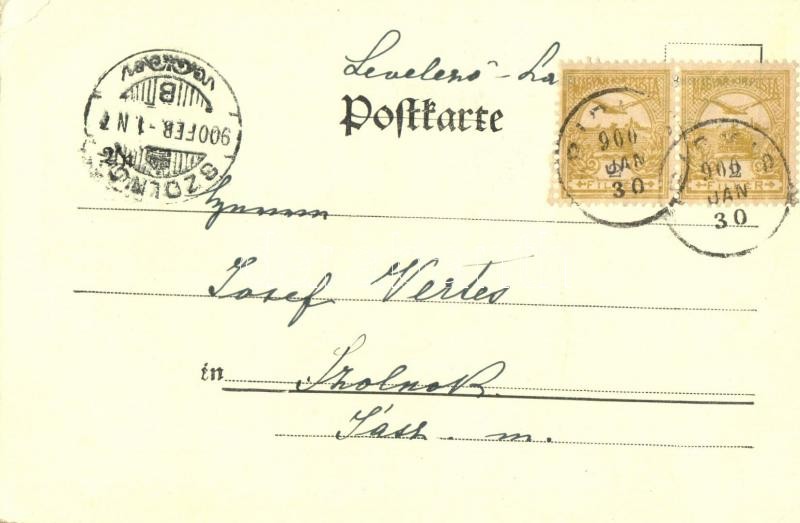 Levelező-La
Postkarte
MAGYAR KIR. POSTA
MAGYAR KIR. POSTA
2
2
FILLÉR
FILLÉR
900
JAN
30
900
JAN
30
SZOLNOK
900 FEB.-1. N 7
B
Josef Vertes
in Szolnok
Jász. m.